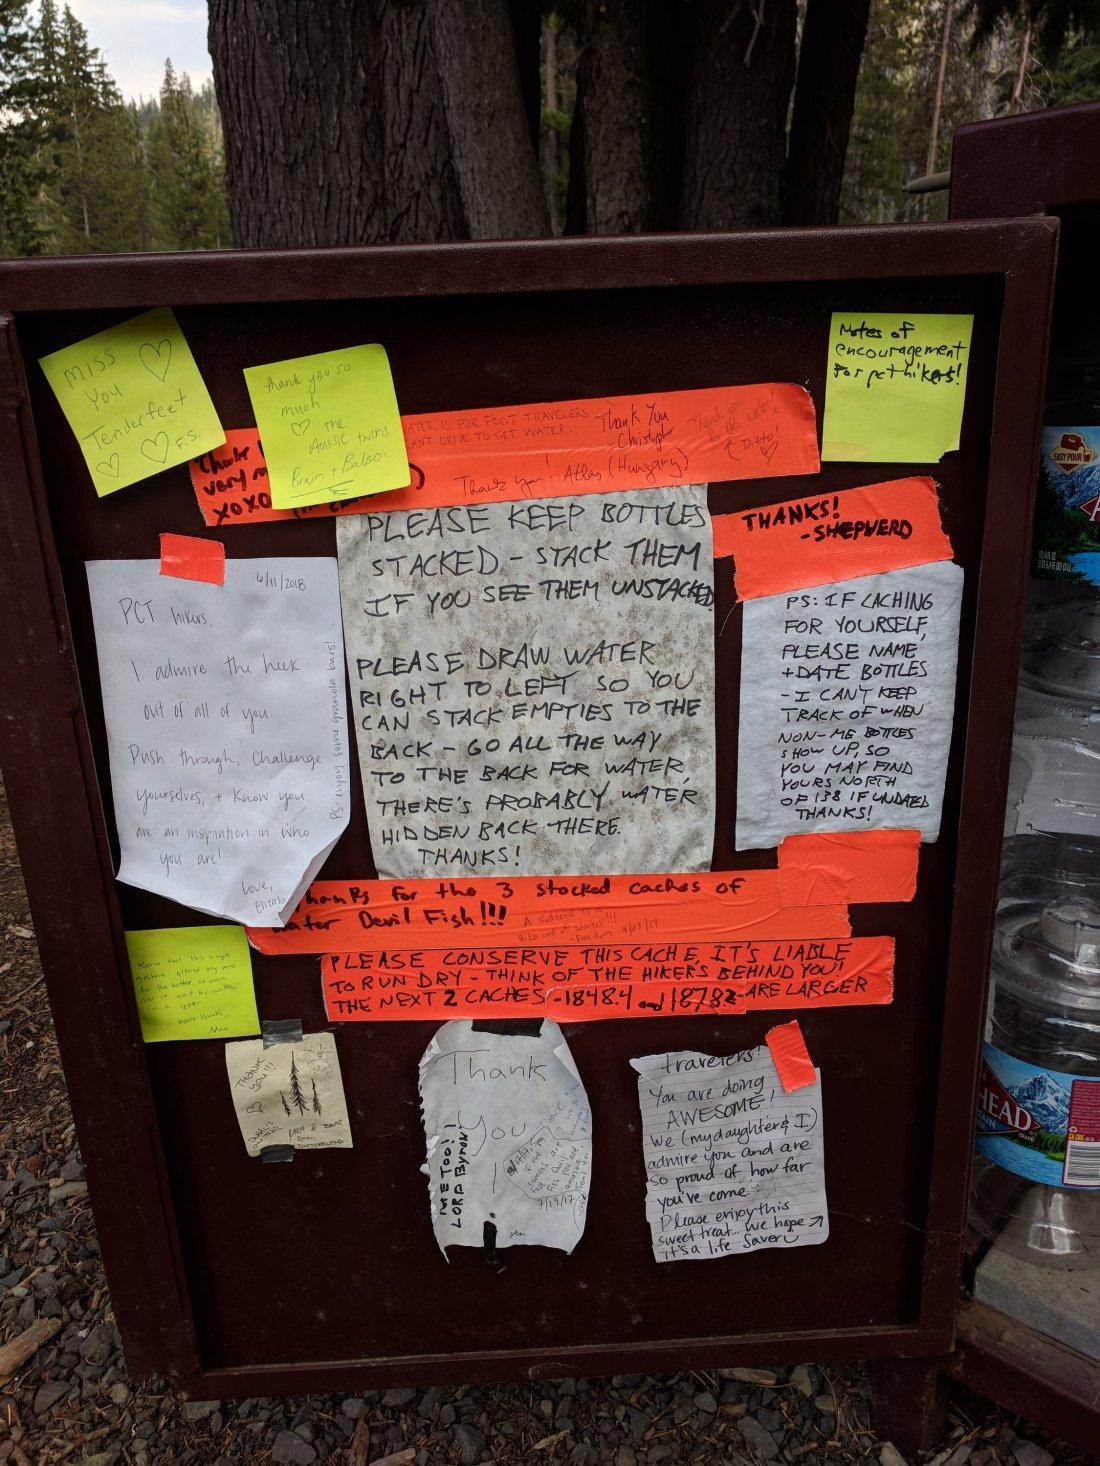 Miss
You
Tenderfeet
F.S.
thank you so
much
the
Aussie twins
Bruin + Baloo.
WATER IS FOR FOOT TRAVELERS
CAN'T DRIVE TO GET WATER.
Thank You
-Christopher
Thank you
for the water!
Ditto!
Thank you! Atlas (Hungary)
Thank
very
XOXO
Notes of
encouragement
for pct hikers!
PLEASE KEEP BOTTLES
STACKED - STACK THEM
IF YOU SEE THEM UNSTACKED
PLEASE DRAW WATER
RIGHT TO LEFT SO YOU
CAN STACK EMPTIES TO THE
BACK - GO ALL THE WAY
TO THE BACK FOR WATER,
THERE'S PROBABLY WATER
HIDDEN BACK THERE.
THANKS!
THANKS!
-SHEPHERD
PS: IF CACHING
FOR YOURSELF,
PLEASE NAME
+DATE BOTTLES
- I CAN'T KEEP
TRACK OF WHEN
NON-ME BOTTLES
SHOW UP, SO
YOU MAY FIND
YOURS NORTH
OF 138 IF UNDATED
THANKS!
6/11/2018
PCT hikers,
I admire the heck
out of all of you.
Push through, Challenge
yourselves, + Know you
are an inspiration in who
you are!
Love,
Elizab
PS: enjoy some granola bars!
Thanks for the 3 stocked caches of
water Devil Fish!!!
A Godsend to a
Hike out of water!!!
-Freedom
PLEASE CONSERVE THIS CACHE, IT'S LIABLE
TO RUN DRY - THINK OF THE HIKERS BEHIND YOU!
THE NEXT 2 CACHES -1848.4 and 1878.2- ARE LARGER
Know that this simple
gesture
for the better, so much
that it can't be written
in a letter
many thanks,
THANK
YOU!!!
Thank
YOU
!
ME TOO!!
LORD BYRON!
7/19/17
travelers!
You are doing
AWESOME!
We (my daughter & I)
admire you and are
so proud of how far
you've come
Please enjoy this
sweet treat... we hope
it's a life saver
EASY POUR
HEAD